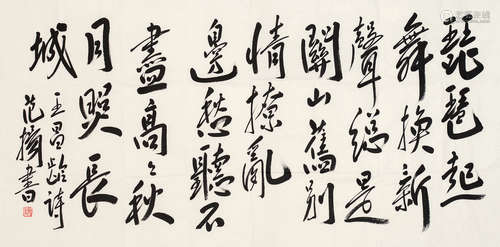 琵琶起
舞換新
聲總是
關山舊別
情撩亂
邊愁聽不
盡高〻秋
月照長
城
王昌齡詩
范擴書